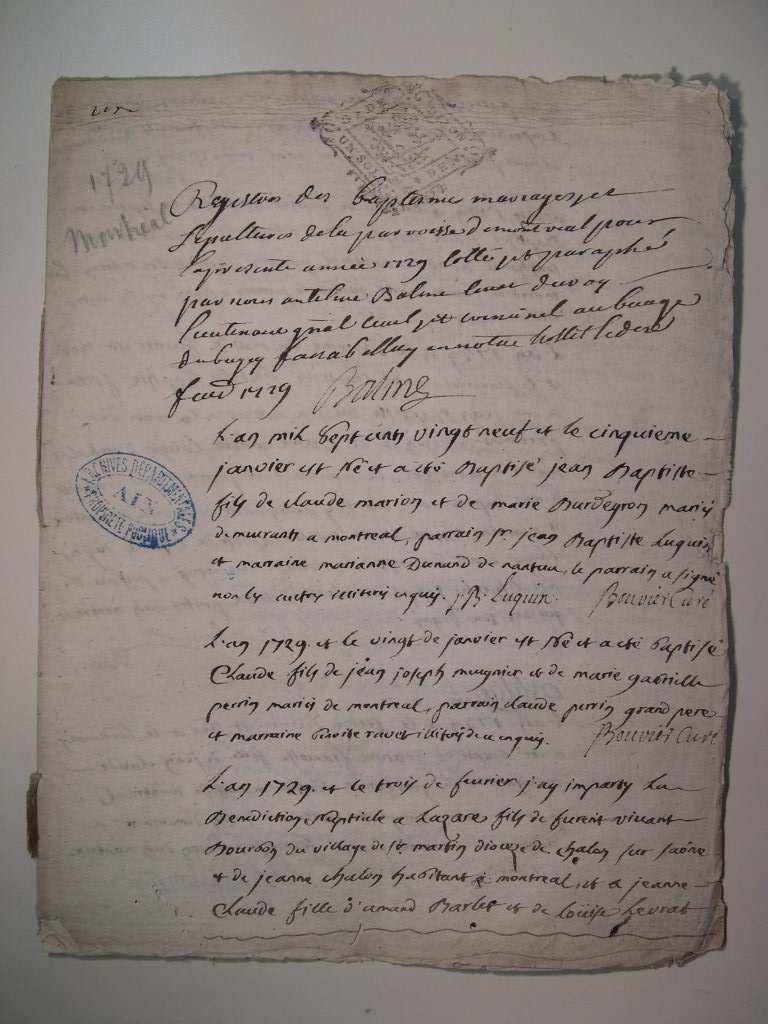 1729
Montréal
UN SOL
Registres des baptesmes mariages et
sepultures de la parroisse de montreal pour
la presente année 1729 cotté et paraphé
par nous anthelme Balme du roy
lieutenant gñal civil et criminel au bailliage
du bugey
1729 Balme
ARCHIVES DEPARTEMENTALES
AIN
PROPRIETE PUBLIQUE
L'an mil sept cents vingt neuf et le cinquieme
janvier est né et a été Baptisé jean Baptiste
fils de claude marion et de marie Burdeyron mariés
demeurants a montreal, parrain sr. jean Baptiste Luquin
et marraine marianne Dunand de nantua, le parrain a signé
non les autres illiterés enquis. j B. Luquin. Bouvier Curé
L'an 1729. et le vingt de janvier est né et a été baptisé
Claude fils de jean joseph mugnier et de marie gabrielle
perrin mariés de montreal, parrain claude perrin grand pere
et marraine ravet illiterés de ce enquis. Bouvier Curé
L'an 1729. et le trois de fevrier j'ay imparty La
Benediction Nuptiale a Lazare fils de furent vivant
Bourdon du village de st. martin dioceze de chalon sur saône
et de jeanne chalon habitant a montreal, et a jeanne
Claude fille d'amand Barlet et de Loüise Levrat